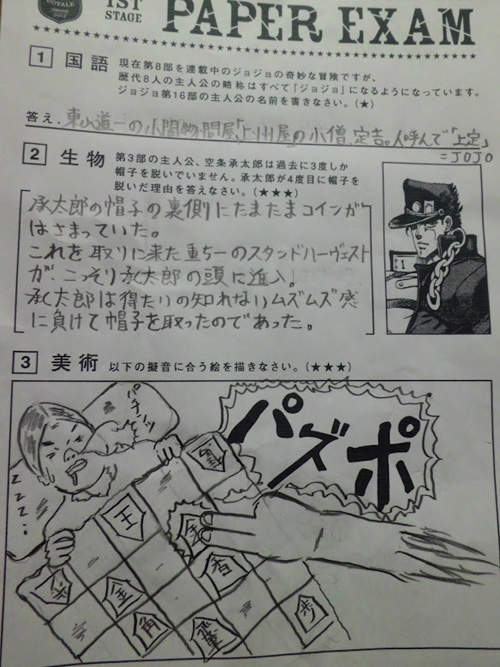 ROYALE
1ST
STAGE
PAPER EXAM
1 国語 現在第8部を連載中のジョジョの奇妙な冒険ですが、
歴代8人の主人公の略称はすべて「ジョジョ」になるようになっています。
ジョジョ第16部の主人公の名前を書きなさい。(★)
答え. 東山道一の小間物問屋「上州屋」の小僧、定吉。人呼んで「上定」
=JOJO
2 生物 第3部の主人公、空条承太郎は過去に3度しか
帽子を脱いでいません。承太郎が4度目に帽子を
脱いだ理由を答えなさい。(★★★)
承太郎の帽子の裏側にたまたまコインが
はさまっていた。
これを取りに来た重ちーのスタンドハーヴェスト
が、こっそり承太郎の頭に進入。
承太郎は得たいの知れないムズムズ感
に負けて帽子を取ったのであった。
3 美術 以下の擬音に合う絵を描きなさい。(★★★)
パチッ
ZZZ…
パズポ
王
香
歩
金
角
飛車
歩